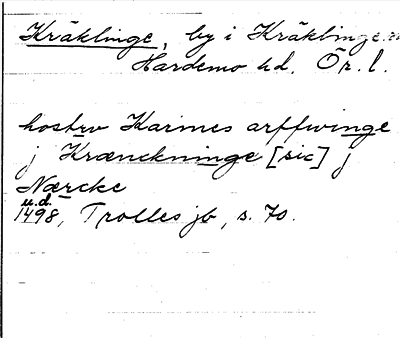 Kräklinge, by i Kräklinge
Hardemo hd. Ör. l.
hostrv Karines arffwinge
j Krænckninge [sic] j
Nærcke
u.d.
1498, Trolles jb, s. 70.